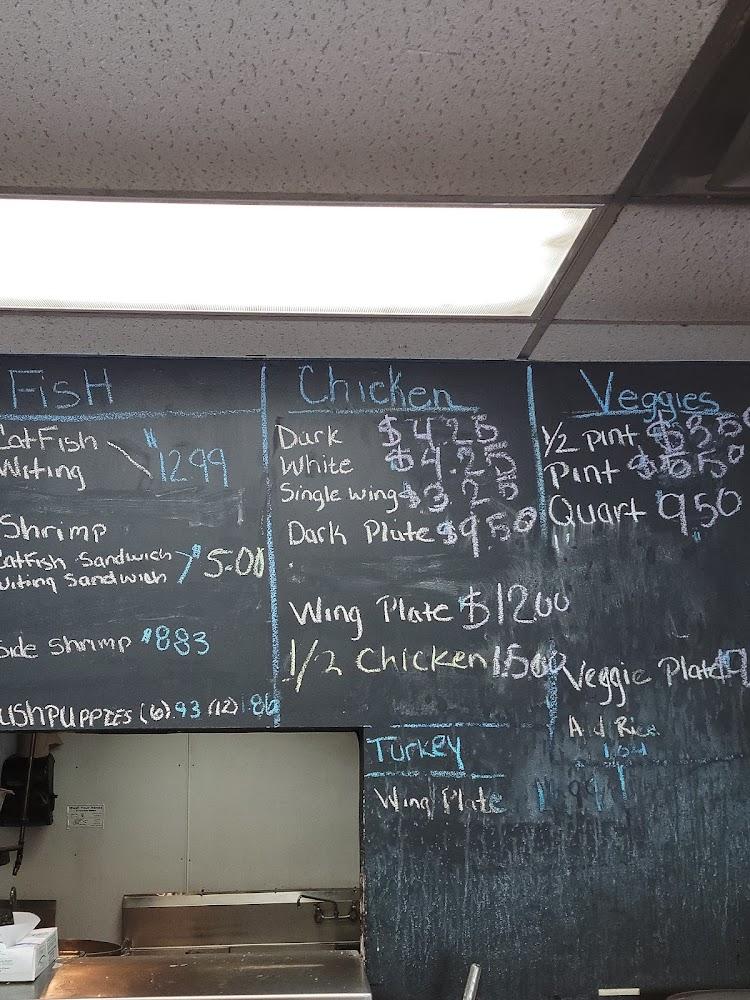 FisH
CatFish
Witing $12.99
Shrimp
CatFish Sandwich
Witing Sandwich $5.00
Side Shrimp $8.83
ushpuppies (6) .93 (12) 1.86
Chicken
Dark $4.25
White $4.25
Single wing $3.25
Dark Plate $9.50
Wing Plate $12.00
1/2 Chicken 15.00
Turkey
Wing Plate
Veggies
1/2 pint $3.50
Pint $5.50
Quart 9.50
Veggie Plate $9
Rice